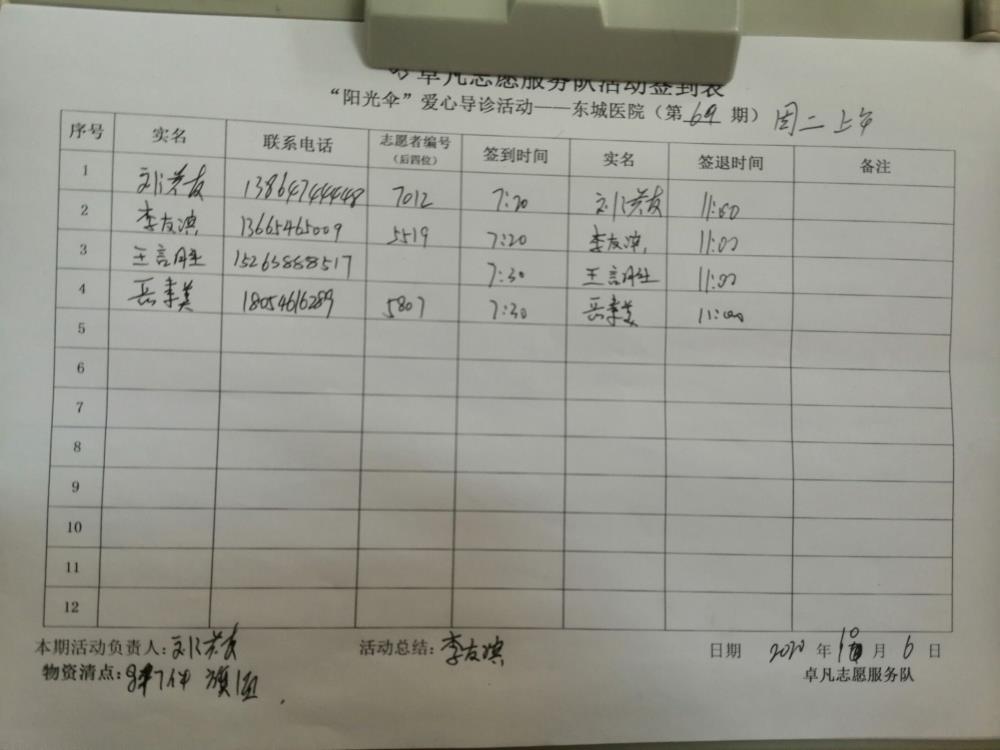 卓凡志愿服务队活动签到表
“阳光伞”爱心导诊活动——东城医院（第69期） 周二上午
序号 实名 联系电话 志愿者编号（后四位） 签到时间 实名 签退时间 备注
1 刘洪友 13864744448 7012 7:20 刘洪友 11:00
2 李友滨 13665465009 5519 7:20 李友滨 11:00
3 王言胜 15265888517 7:30 王言胜 11:00
4 岳秉美 18054616289 5807 7:30 岳秉美 11:00
5
6
7
8
9
10
11
12
本期活动负责人：刘洪友 活动总结：李友滨 日期 2020年10月6日
物资清点： 7件 旗1面
卓凡志愿服务队